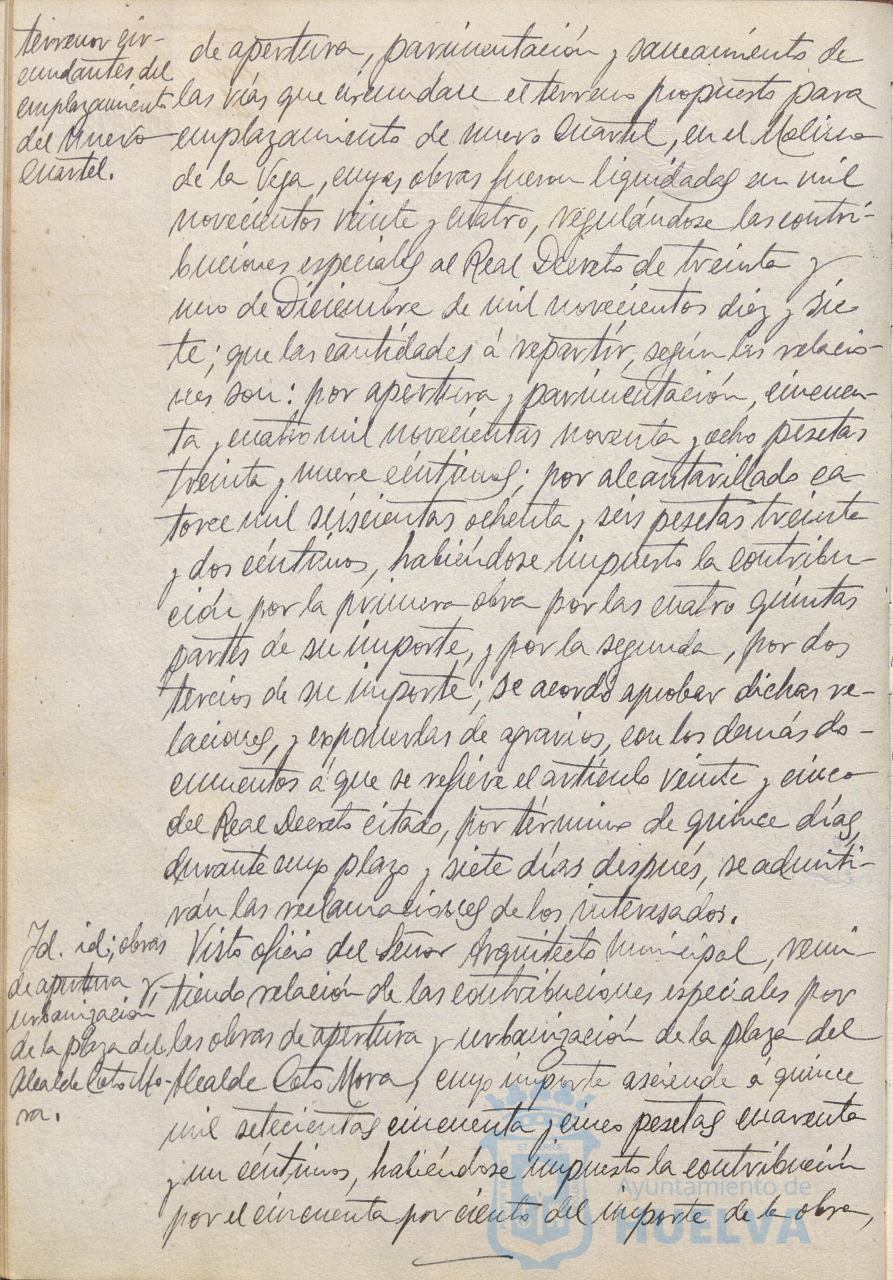 terrenos cir-
cundantes del
emplazamiento
del nuevo
cuartel.
de apertura, pavimentación y saneamiento de
las vías que circundan el terreno propuesto para
emplazamiento de nuevo Cuartel, en el Molino
de la Vega, cuyas obras fueron liquidadas en mil
novecientos veinte y cuatro, regulándose las contri-
buciones especiales al Real Decreto de treinta y
uno de Diciembre de mil novecientos diez y sie
te; que las cantidades á repartir, según las relacio-
nes son: por apertura y pavimentación, cincuen-
ta y cuatro mil novecientas noventa y ocho pesetas
treinta y nueve céntimos; por alcantarillado ca
torce mil seiscientas ochenta y seis pesetas treinta
y dos céntimos, habiéndose impuesto la contribu-
ción por la primera obra por las cuatro quintas
partes de su importe, y por la segunda, por dos
tercios de su importe; se acordó aprobar dichas re-
laciones, y exponerlas de agravios, con los demás do-
cumentos á que se refiere el artículo veinte y cinco
del Real Decreto citado, por término de quince días,
durante cuyo plazo y siete días después, se admiti-
rán las reclamaciones de los interesados.
Id. id; obras
de apertura y
urbanización
de la plaza del
Alcalde Coto Mo-
ra.
Visto oficio del Señor Arquitecto Municipal, remi-
tiendo relación de las contribuciones especiales por
las obras de apertura y urbanización de la plaza del
Alcalde Coto Mora, cuyo importe asciende á quince
mil setecientas cincuenta y cinco pesetas cuarenta
y un céntimos, habiéndose impuesto la contribución
por el cincuenta por ciento del importe de la obra,
Ayuntamiento de
HUELVA